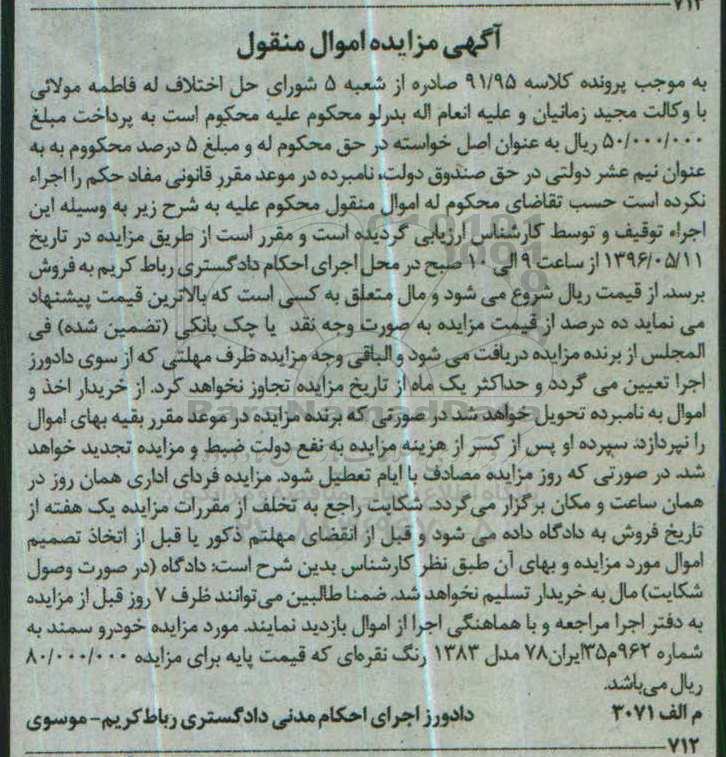 ۷۱۳
آگهی مزایده اموال منقول
به موجب پرونده کلاسه ۹۱/۹۵ صادره از شعبه ۵ شورای حل اختلاف له فاطمه مولائی
با وکالت مجید زمانیان و علیه انعام اله بدرلو محکوم علیه محکوم است به پرداخت مبلغ
۵۰/۰۰۰/۰۰۰ ریال به عنوان اصل خواسته در حق محکوم له و مبلغ ۵ درصد محکووم به به
عنوان نیم عشر دولتی در حق صندوق دولت، نامبرده در موعد مقرر قانونی مفاد حکم را اجراء
نکرده است حسب تقاضای محکوم له اموال منقول محکوم علیه به شرح زیر به وسیله این
اجراء توقیف و توسط کارشناس ارزیابی گردیده است و مقرر است از طریق مزایده در تاریخ
۱۳۹۶/۰۵/۱۱ از ساعت ۹ الی ۱۰ صبح در محل اجرای احکام دادگستری رباط کریم به فروش
برسد. از قیمت ریال شروع می شود و مال متعلق به کسی است که بالاترین قیمت پیشنهاد
می نماید ده درصد از قیمت مزایده به صورت وجه نقد یا چک بانکی (تضمین شده) فی
المجلس از برنده مزایده دریافت می شود و الباقی وجه مزایده ظرف مهلتی که از سوی دادورز
اجرا تعیین می گردد و حداکثر یک ماه از تاریخ مزایده تجاوز نخواهد کرد. از خریدار اخذ و
اموال به نامبرده تحویل خواهد شد در صورتی که برنده مزایده در موعد مقرر بقیه بهای اموال
را نپردازد. سپرده او پس از کسر از هزینه مزایده به نفع دولت ضبط و مزایده تجدید خواهد
شد. در صورتی که روز مزایده مصادف با ایام تعطیل شود. مزایده فردای اداری همان روز در
همان ساعت و مکان برگزار می گردد. شکایت راجع به تخلف از مقررات مزایده یک هفته از
تاریخ فروش به دادگاه داده می شود و قبل از انقضای مهلتم ذکور یا قبل از اتخاذ تصمیم
اموال مورد مزایده و بهای آن طبق نظر کارشناس بدین شرح است: دادگاه (در صورت وصول
شکایت) مال به خریدار تسلیم نخواهد شد. ضمنا طالبین می‌توانند ظرف ۷ روز قبل از مزایده
به دفتر اجرا مراجعه و با هماهنگی اجرا از اموال بازدید نمایند. مورد مزایده خودرو سمند به
شماره ۹۶۲م۳۵ایران۷۸ مدل ۱۳۸۳ رنگ نقره‌ای که قیمت پایه برای مزایده ۸۰/۰۰۰/۰۰۰
ریال می‌باشد.
م الف ۳۰۷۱ دادورز اجرای احکام مدنی دادگستری رباط‌کریم- موسوی
۷۱۲